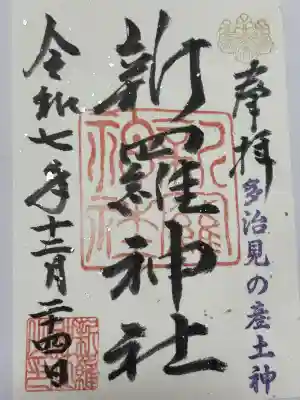 奉拝
多治見の産土神
新羅神社
新羅神社
令和七年十二月二十四日